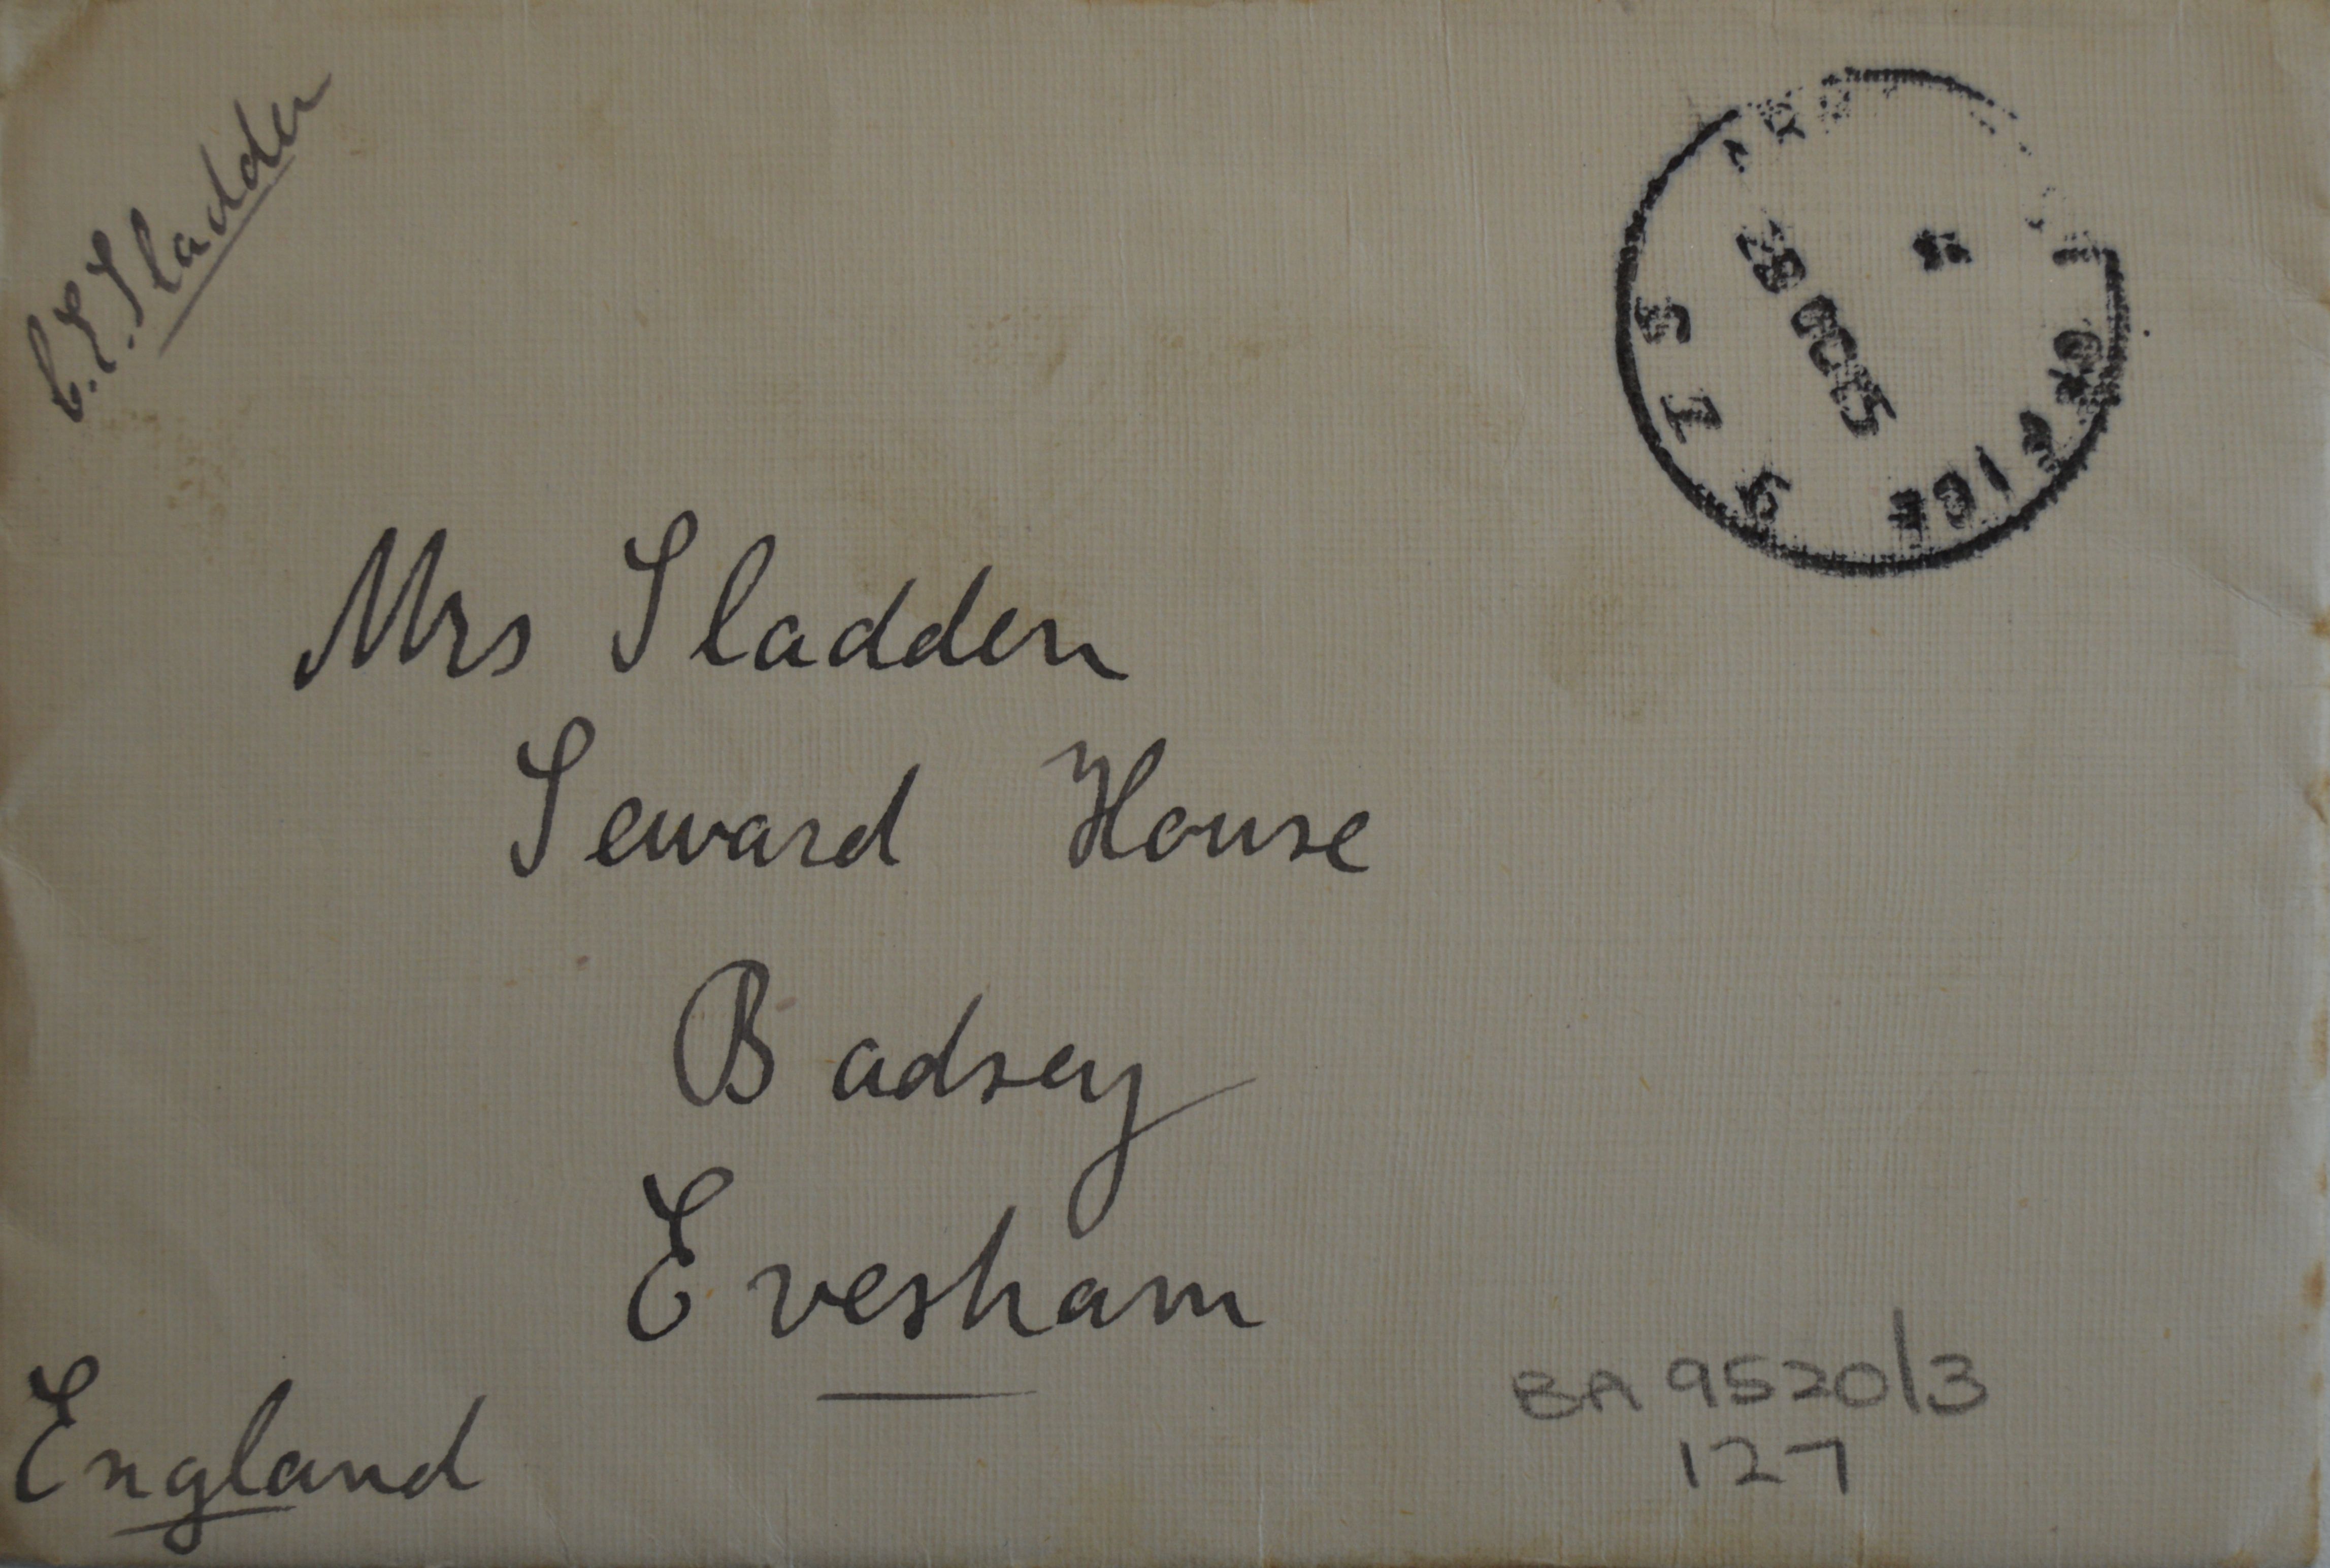 C.E. Sladden
28 OC 15
OFFICE
Mrs Sladden
Seward House
Badsey
Evesham
England
BA 9520/3
127